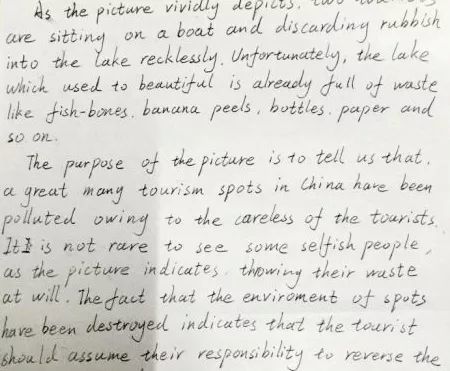 As the picture vividly depicts, two
are sitting on a boat and discarding rubbish
into the lake recklessly. Unfortunately, the lake
which used to beautiful is already full of waste
like fish-bones, banana peels, bottles, paper and
so on.
The purpose of the picture is to tell us that,
a great many tourism spots in China have been
polluted owing to the careless of the tourists.
It is not rare to see some selfish people,
as the picture indicates, throwing their waste
at will. The fact that the enviroment of spots
have been destroyed indicates that the tourist
should assume their responsibility to reverse the